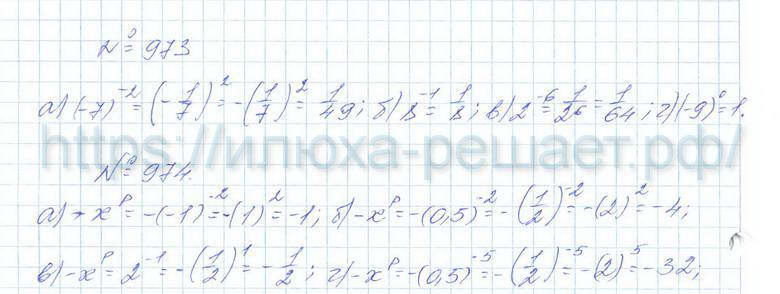 № 973
а) (-7)⁻² = (-1/7)² = -(1/7)² = 1/49; б) 8⁻¹ = 1/8; в) 2⁻⁶ = 1/2⁶ = 1/64; г) (-9)⁰ = 1.
https://илюха-решает.рф/
№ 974.
а) -xᵖ = -(-1)⁻² = -(1)² = -1; б) -xᵖ = -(0,5)⁻² = -(1/2)⁻² = -(2)² = -4;
в) -xᵖ = 2⁻¹ = -(1/2)¹ = -1/2; г) -xᵖ = -(0,5)⁻⁵ = -(1/2)⁻⁵ = -(2)⁵ = -32;